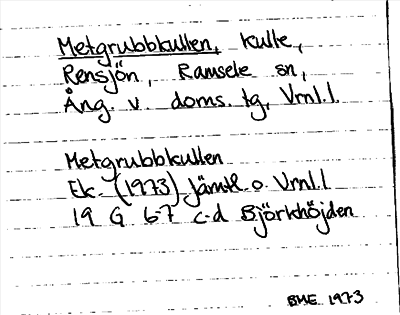 Metgrubbkullen, kulle,
Rensjön, Ramsele sn,
Ång. v. doms. tg, Vrnl.l.
Metgrubbkullen
Ek. (1973) Jämtl. o. Vrnl.l
19 G 6-7 c-d Björkhöjden
BME 1973